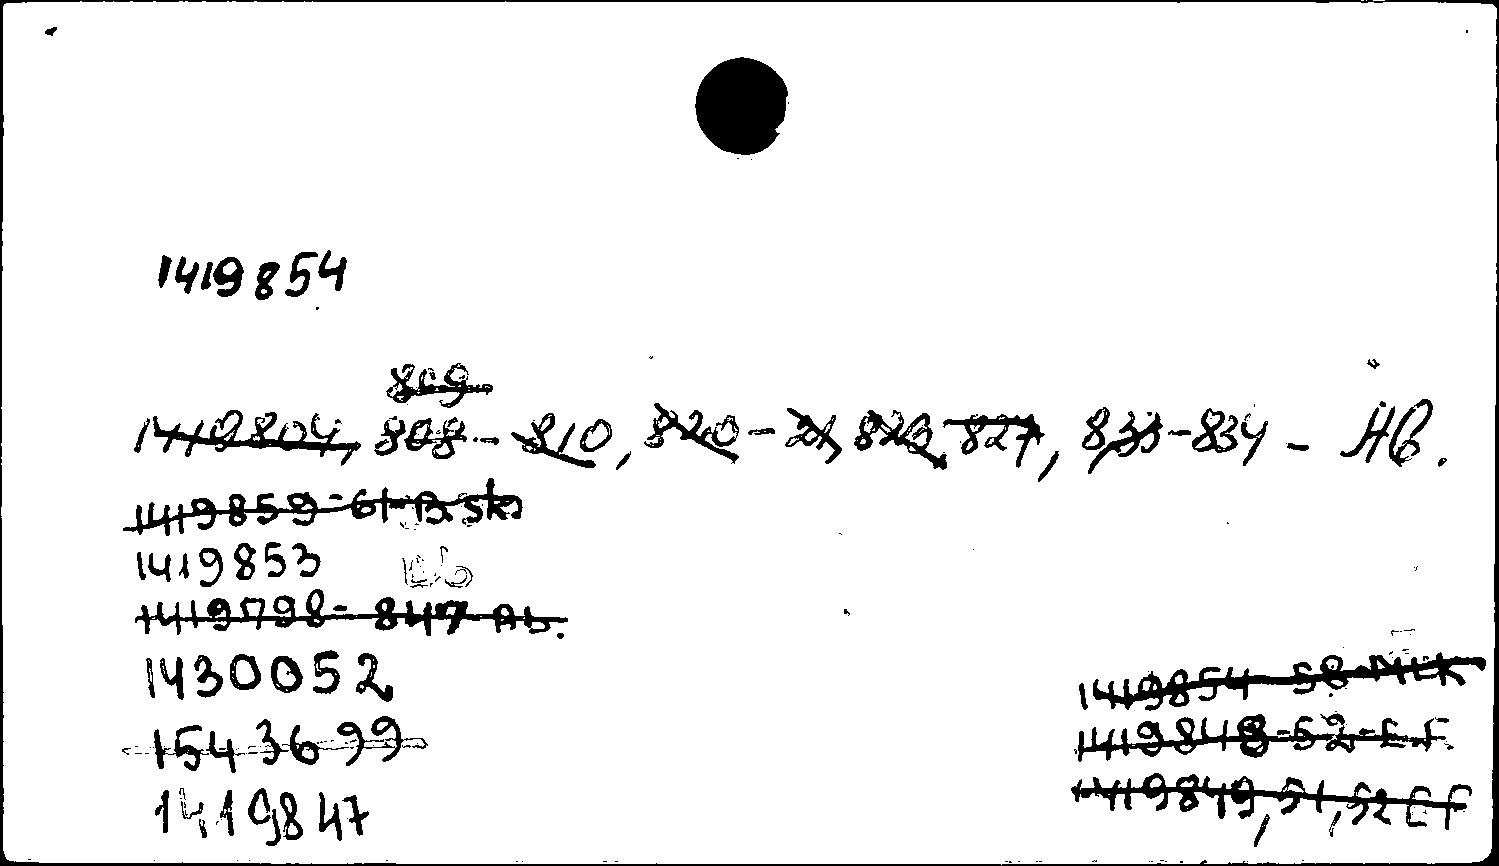 1419854
809
1419804, 808 - 810, 820 - 21, 823, 827, 833-834 - Нв.
1419859-61-B.sk
1419853
1419798- 847 Ab.
1430052
1543699
1419847
1419854-58-MLK
1419848-52-E.F.
1419849, 51, 52 EF